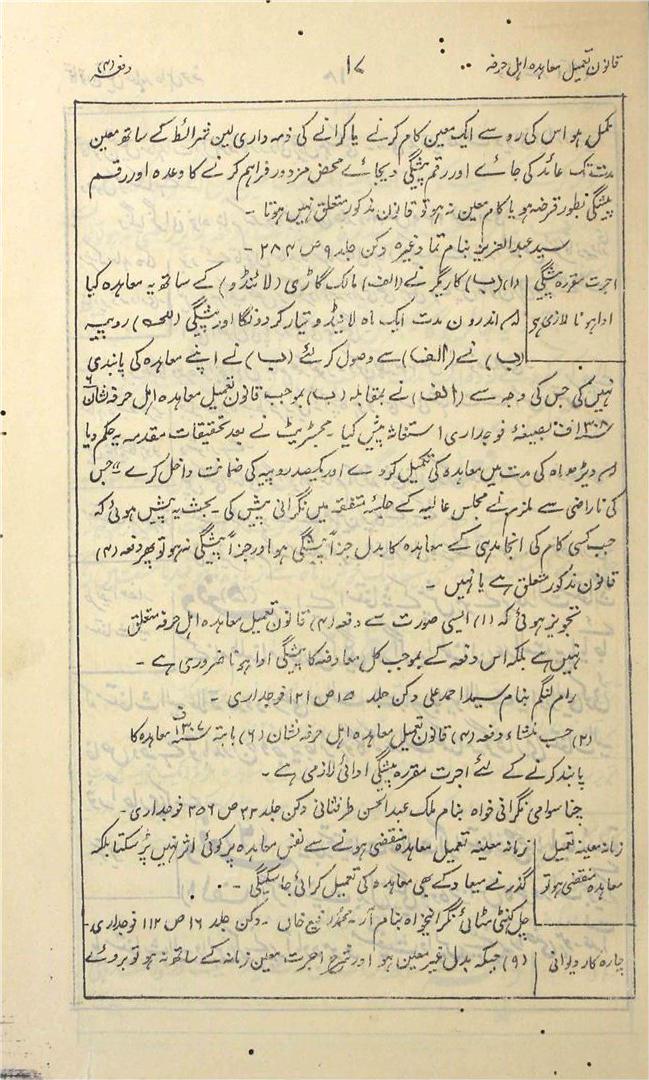 قانون تعمیل معاہدہ اہل حرفہ ۱۷ دفعہ (۴)
مکمل ہو اس کی رو سے ایک معین کام کرنے یا کرانے کی ذمہ داری لین شرائط کے ساتھ معین
مدت تک عائد کی جائے اور رقم پیشگی دیجائے محض مزدور فراہم کرنے کا وعدہ اور رقم
پیشگی بطور قرضہ ہو یا کام معین نہ ہو تو قانون مذکور متعلق نہیں ہوتا ۔
سید عبدالعزیز بنام تما وغیرہ دکن جلد ۹ ص ۲۸۴ ۔
اجرت مقررہ پیشگی
ادا ہونا لازمی ہے
(۱) (ب) کاریگر نے (الف) مالک گاڑی (لانڈو) کے ساتھ یہ معاہدہ کیا
کہ اندرون مدت ایک ماہ لانڈو تیار کر دونگا اور پیشگی روپیہ
(ب) نے (الف) سے وصول کر لئے (ب) نے اپنے معاہدہ کی پابندی
نہیں کی جس کی وجہ سے (الف) نے بمقابلہ (ب) بموجب قانون تعمیل معاہدہ اہل حرفہ نشان ۶
۱۳۰۸ف بصیغۂ فوجداری استغاثہ پیش کیا ۔ مجسٹریٹ نے بعد تحقیقات مقدمہ یہ حکم دیا
کہ ڈیڑھ ماہ کی مدت میں معاہدہ کی تکمیل کر دے اور یکصد روپیہ کی ضمانت داخل کرے ،، جس
کی ناراضی سے ملزم نے مجلس عالیہ کے جلسۂ متفقہ میں نگرانی پیش کی ۔ بحث یہ پیش ہوئی کہ
جب کسی کام کی انجامدہی کے معاہدہ کا بدل جزاً پیشگی ہو اور جزاً پیشگی نہو تو پھر دفعہ (۴)
قانون مذکور متعلق ہے یا نہیں ۔
تجویز ہوئی کہ (۱) ایسی صورت سے دفعہ (۴) قانون تعمیل معاہدہ اہل حرفہ متعلق
نہیں ہے بلکہ اس دفعہ کے بموجب کل معاوضہ کا پیشگی ادا ہونا ضروری ہے ۔
رام لنگم بنام سید احمد علی دکن جلد ۱۵ ص ۱۲۱ فوجداری ۔
(۲) حسب منشاء دفعہ (۴) قانون تعمیل معاہدہ اہل حرفہ نشان (۶) بابتہ ۱۳۰۷ف معاہدہ کا
پابند کرنے کے لئے اجرت مقررہ پیشگی ادائی لازمی ہے ۔
چنا سوامی نگرانی خواہ بنام ملک عبدالحسن طرفثانی دکن جلد ۲۲ ص ۳۵۶ فوجداری ۔
زمانہ معینہ تعمیل
معاہدہ منقضی ہو تو
زمانہ معینہ تعمیل معاہدہ منقضی ہونے سے نفس معاہدہ پر کوئی اثر نہیں پڑ سکتا بلکہ
گذرنے میعاد کے بھی معاہدہ کی تعمیل کرائی جا سکیگی ۔
نگرانیخواہ بنام آر ۔ خاں ۔ دکن جلد ۱۶ ص ۱۱۲ فوجداری ۔
چارہ کار دیوانی
(۹) جبکہ بدل غیر معین ہو اور شرح اجرت، معین زمانہ کے ساتھ نہ ہو تو بروئے